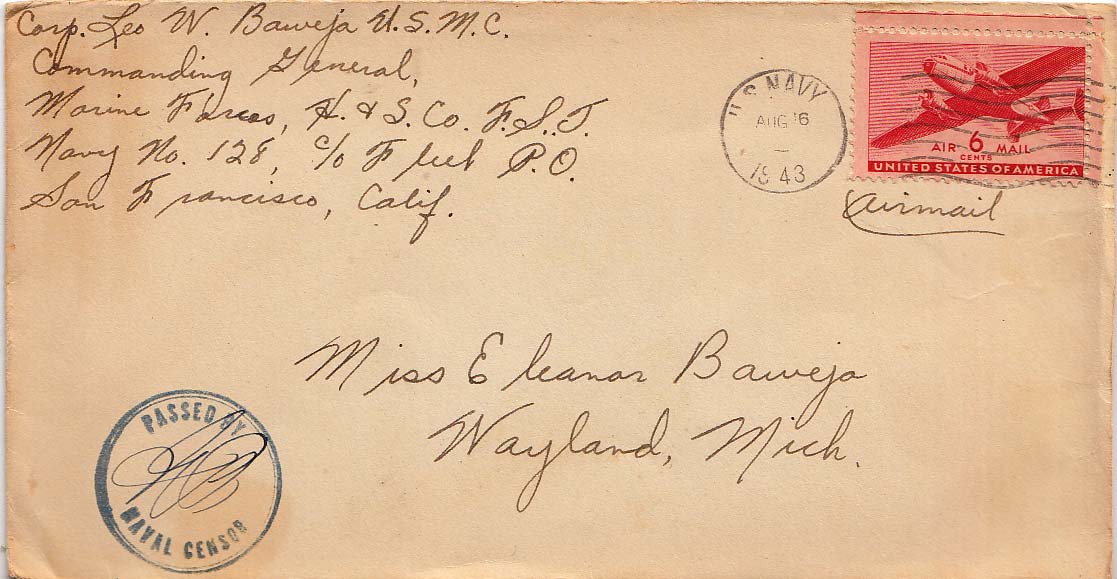 Corp. Leo W. Baweja U.S.M.C.
Commanding General,
Marine Forces, H. & S. Co. F.S.T.
Navy No. 128, c/o Fleet P.O.
San Francisco, Calif.
U.S. NAVY
AUG 16
1943
AIR 6 MAIL
CENTS
UNITED STATES OF AMERICA
Airmail
Miss Eleanor Baweja
Wayland, Mich.
PASSED BY
NAVAL CENSOR